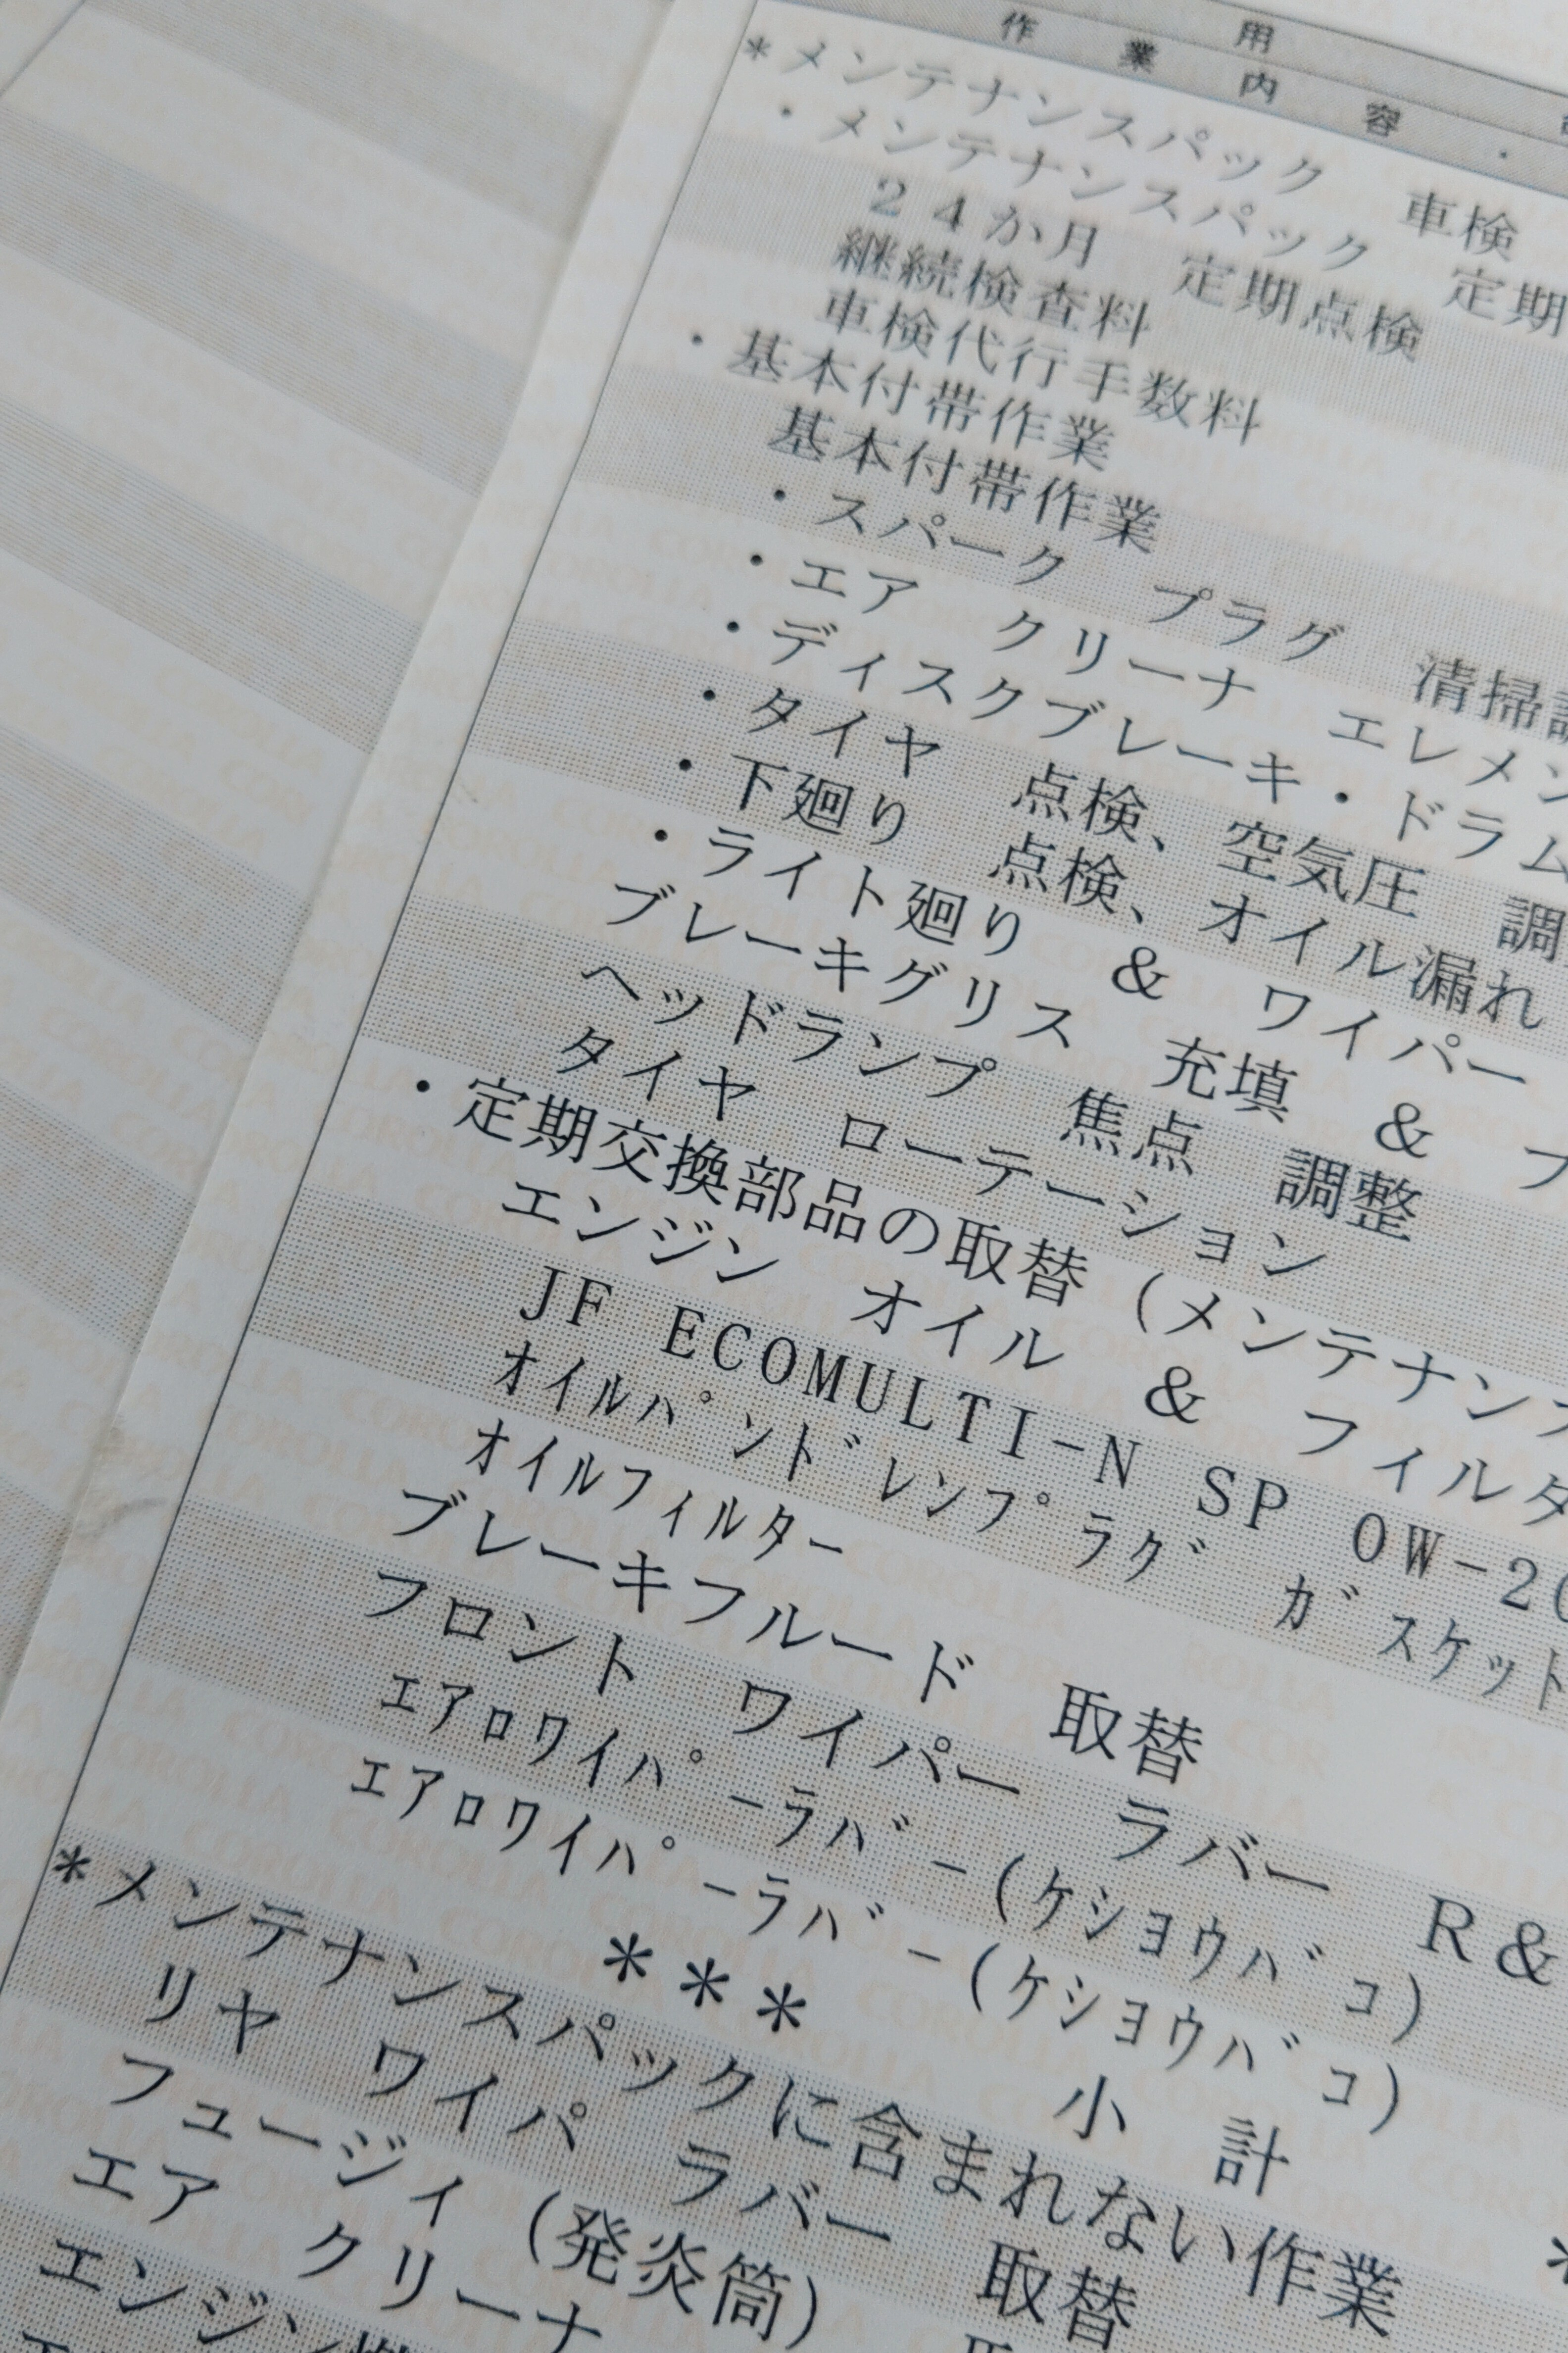 作用
作業内容・
*メンテナンスパック 車検
・メンテナンスパック 定期
24か月 定期点検
継続検査料
車検代行手数料
・基本付帯作業
基本付帯作業
・スパーク プラグ 清掃
・エア クリーナ エレメン
・ディスクブレーキ・ドラム
・タイヤ 点検、空気圧 調
・下廻り 点検、オイル漏れ
・ライト廻り & ワイパー
ブレーキグリス 充填 & フ
ヘッドランプ 焦点 調整
タイヤ ローテーション
・定期交換部品の取替(メンテナンス
エンジン オイル & フィルタ
JF ECOMULTI-N SP 0W-20
オイルパンドレンプラグ ガスケット
オイルフィルター
ブレーキフルード 取替
フロント ワイパー ラバー R&
エアロワイパーラバー(ケショウバコ)
エアロワイパーラバー(ケショウバコ)
*** 小計 *
*メンテナンスパックに含まれない作業
リヤ ワイパ ラバー 取替
フュージィ(発炎筒)
エア クリーナ
エンジン